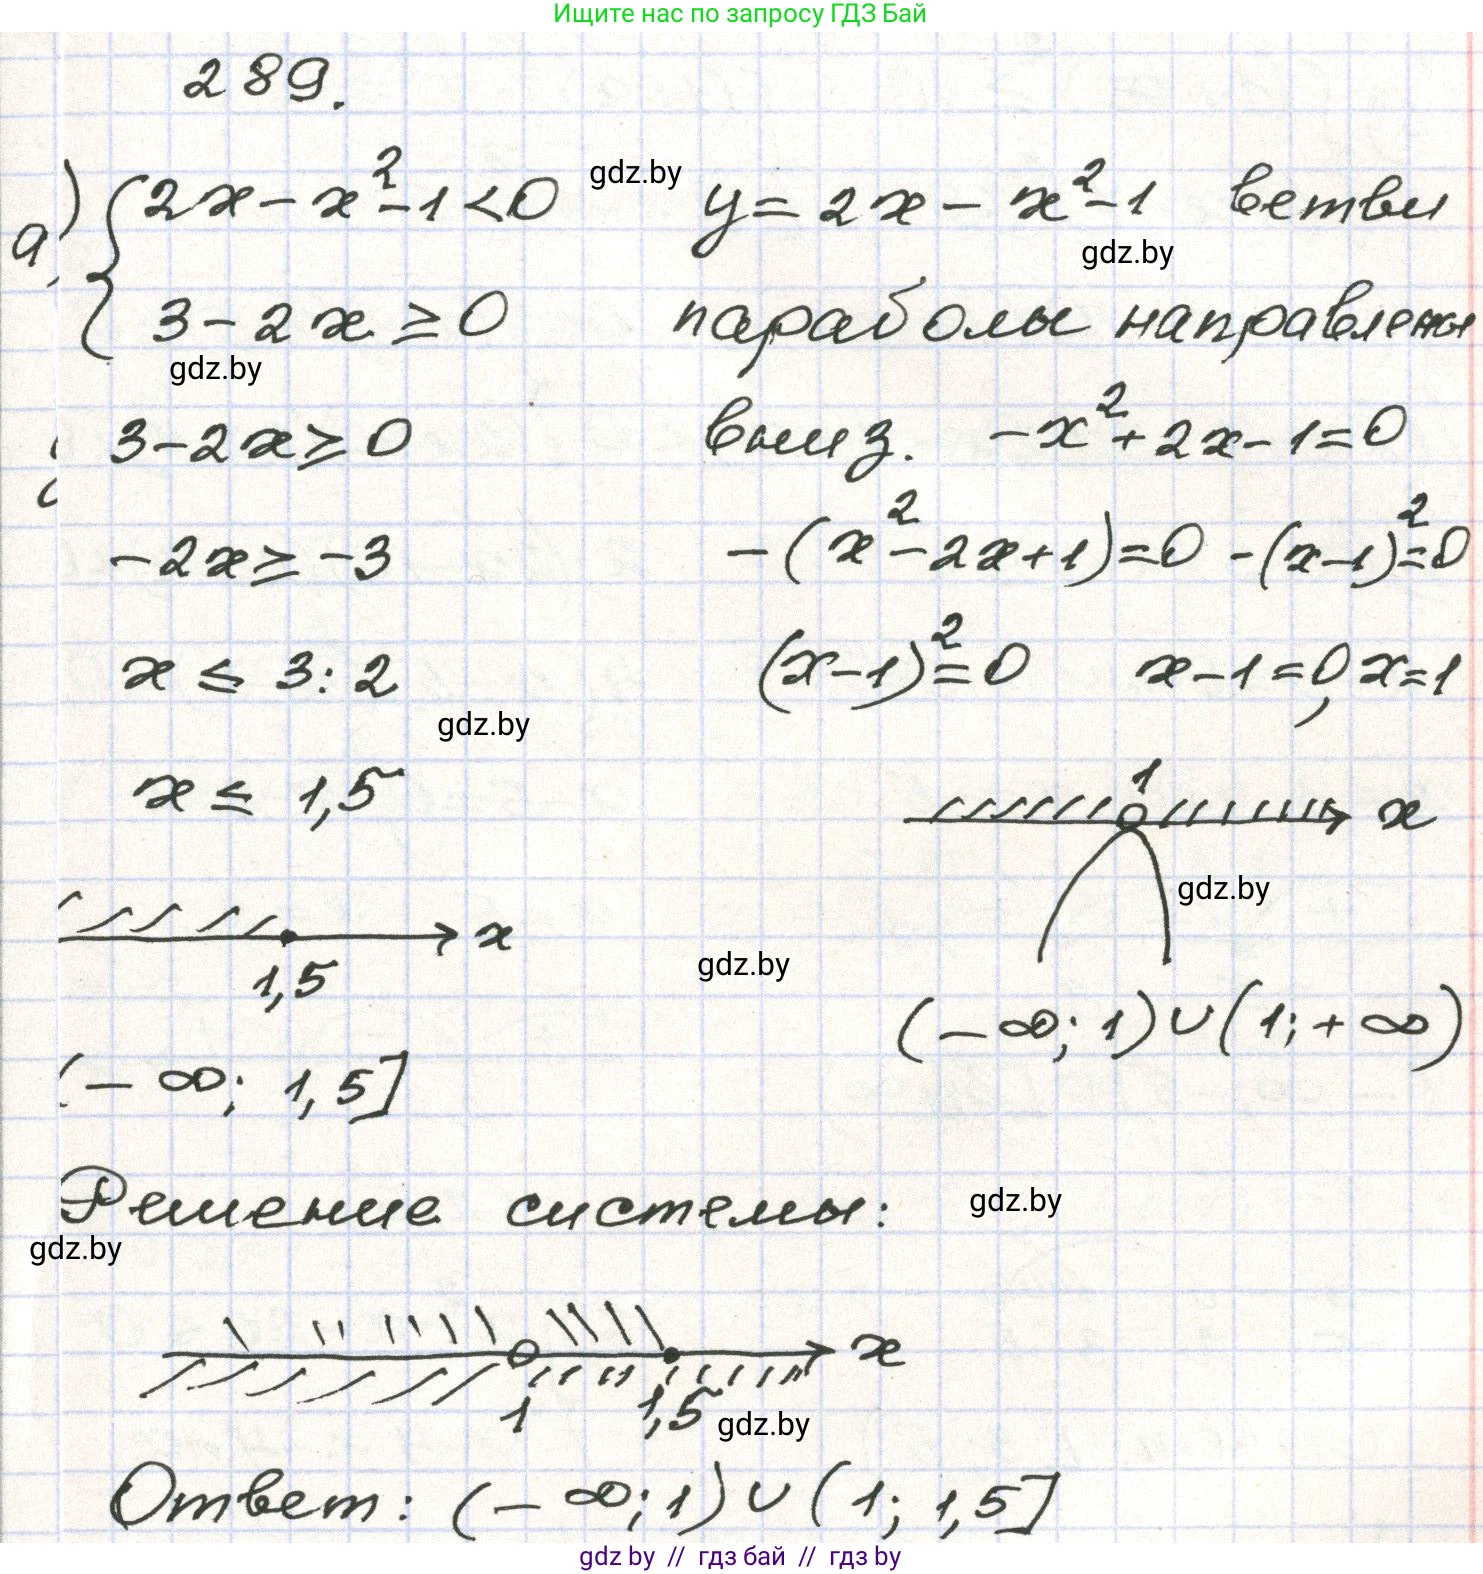 Ищите нас по запросу ГДЗ Бай
289.
а) { 2x - x² - 1 < 0 gdz.by y = 2x - x² - 1 ветви
gdz.by
3 - 2x ≥ 0 параболы направлены
gdz.by
3 - 2x ≥ 0 вниз. -x² + 2x - 1 = 0
-2x ≥ -3 -(x² - 2x + 1) = 0 -(x - 1)² = 0
x ≤ 3 : 2 (x - 1)² = 0 x - 1 = 0, x = 1
gdz.by
x ≤ 1,5 1 x
gdz.by
x
1,5 gdz.by
(-∞; 1) ∪ (1; +∞)
(-∞; 1,5]
Решение системы: gdz.by
gdz.by
x
1 1,5 gdz.by
Ответ: (-∞; 1) ∪ (1; 1,5]
gdz by // гдз бай // гдз by